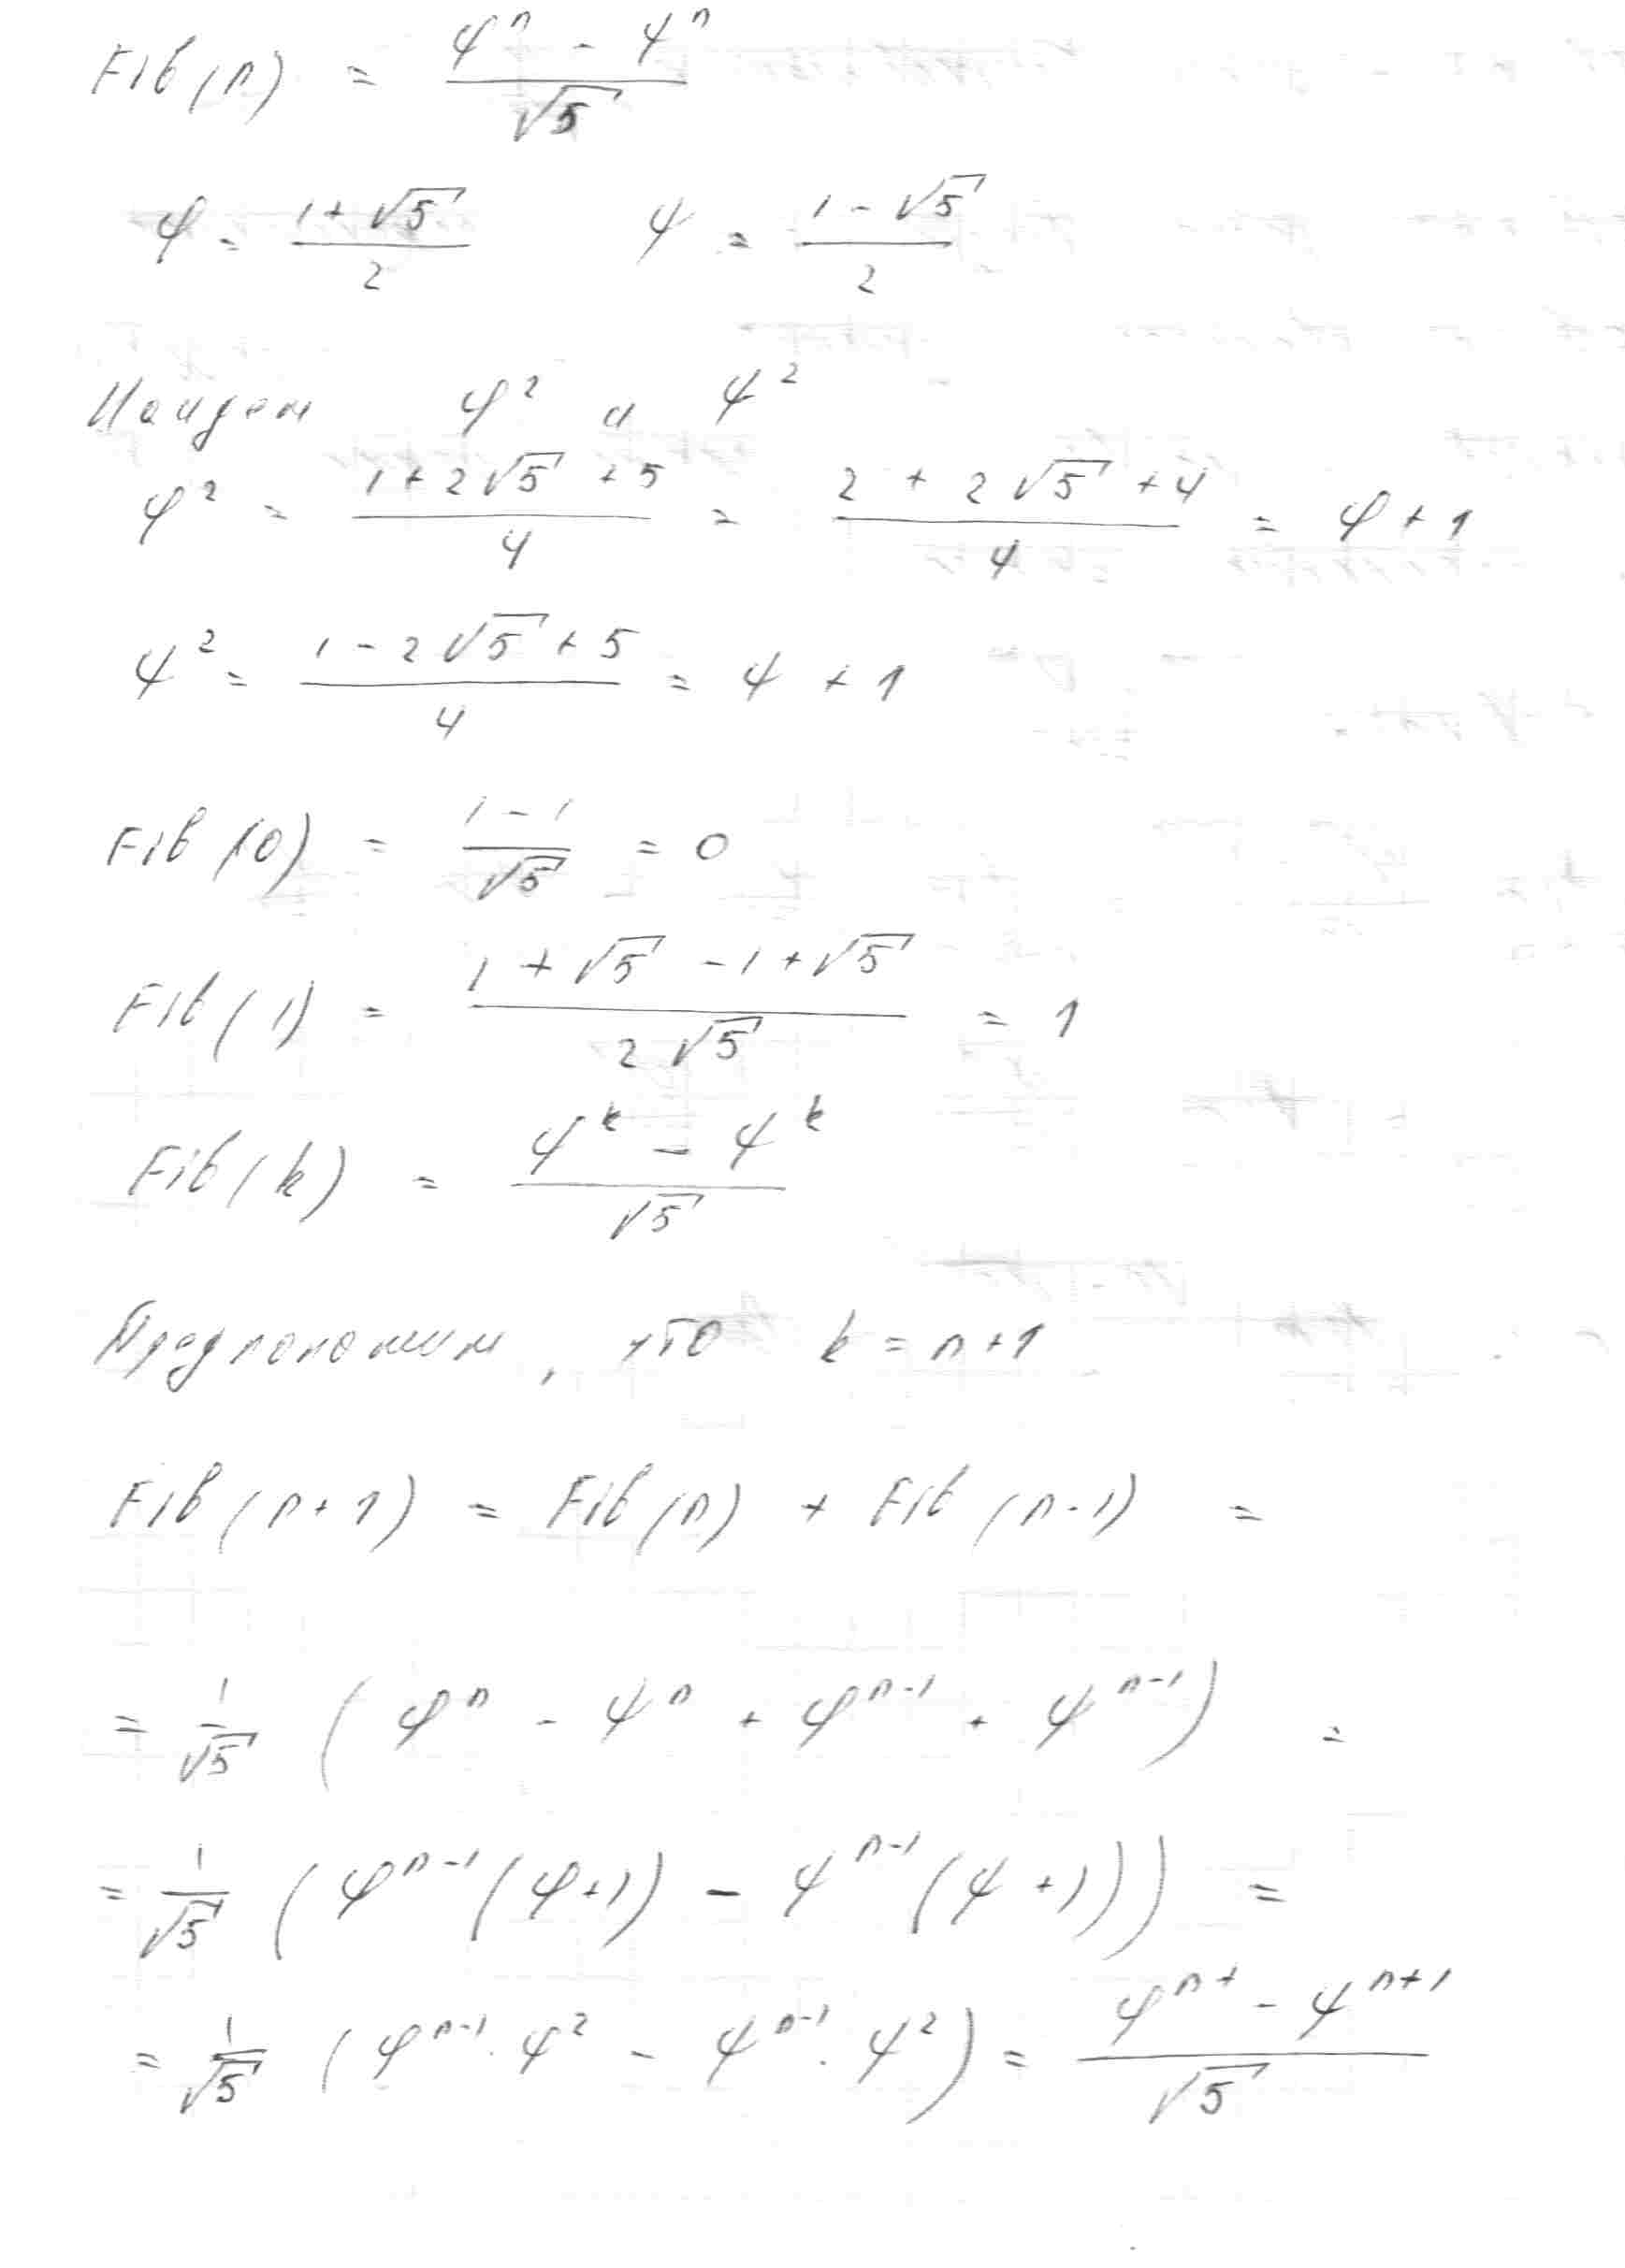 Fib(n) = (φⁿ - ψⁿ)/√5
φ = (1+√5)/2 ψ = (1-√5)/2
Найдем φ² и ψ²
φ² = (1+2√5+5)/4 = (2+2√5+4)/4 = φ+1
ψ² = (1-2√5+5)/4 = ψ+1
Fib(0) = (1-1)/√5 = 0
Fib(1) = (1+√5-1+√5)/(2√5) = 1
Fib(k) = (φᵏ - ψᵏ)/√5
Предположим, что k = n+1
Fib(n+1) = Fib(n) + Fib(n-1) =
= 1/√5 (φⁿ - ψⁿ + φⁿ⁻¹ + ψⁿ⁻¹) =
= 1/√5 (φⁿ⁻¹(φ+1) - ψⁿ⁻¹(ψ+1)) =
= 1/√5 (φⁿ⁻¹·φ² - ψⁿ⁻¹·ψ²) = (φⁿ⁺ - ψⁿ⁺¹)/√5